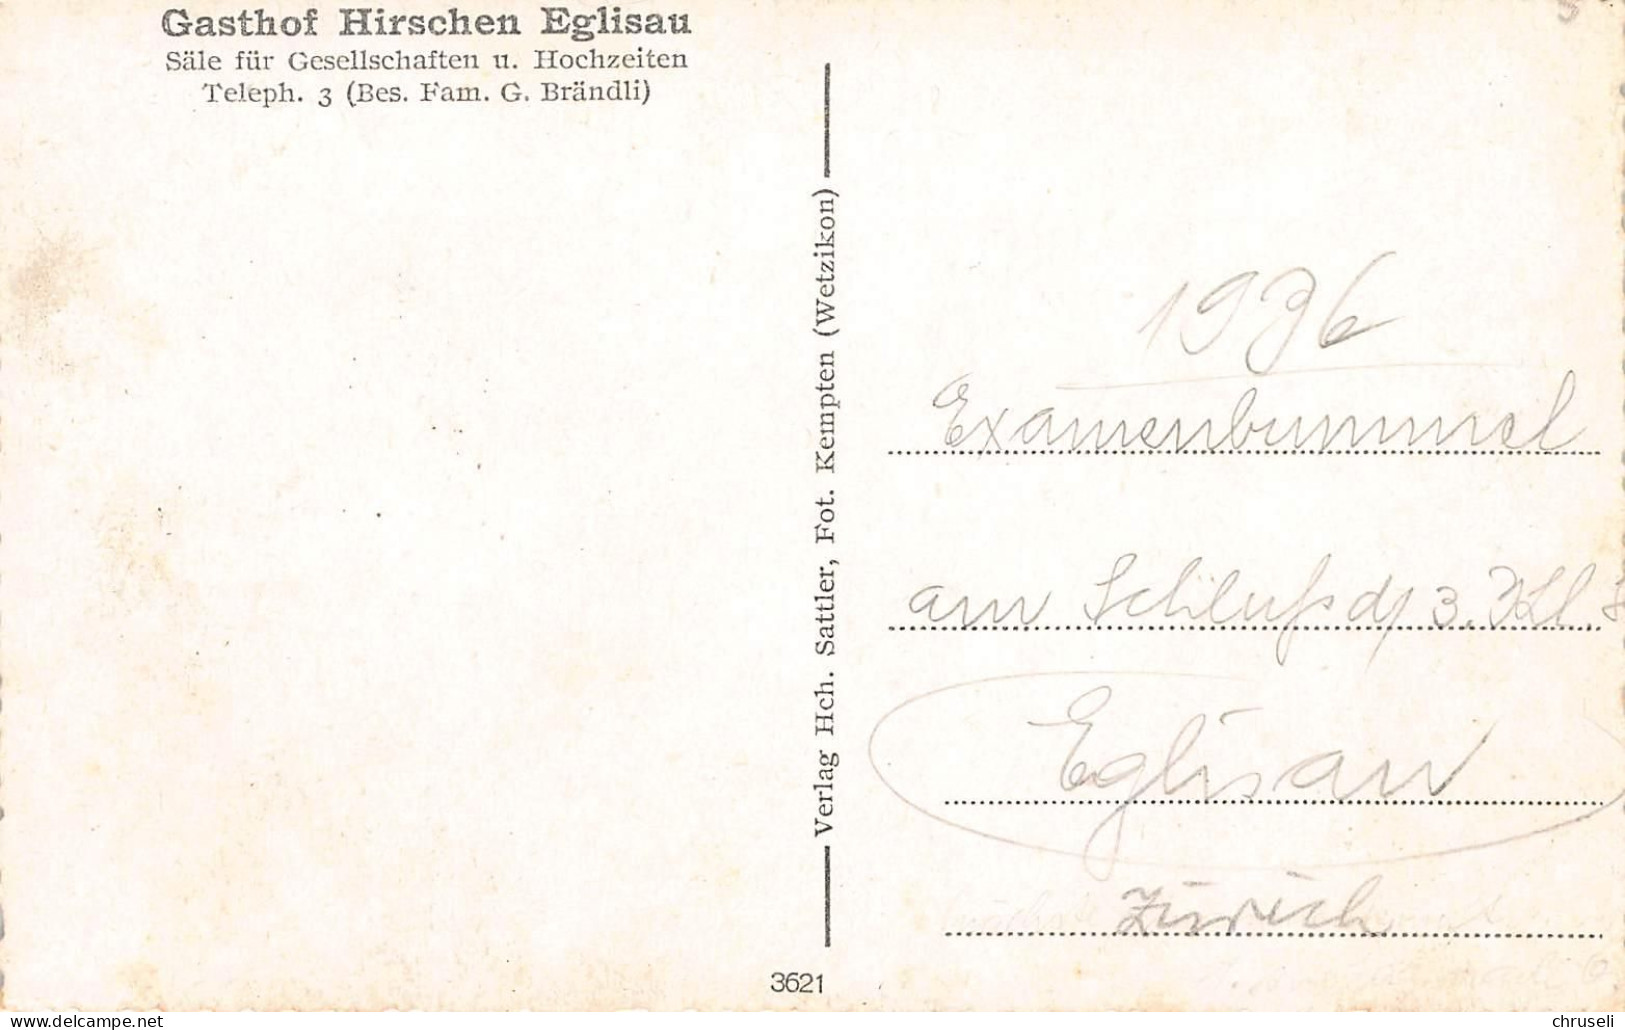 Gasthof Hirschen Eglisau
Säle für Gesellschaften u. Hochzeiten
Teleph. 3 (Bes. Fam. G. Brändli)
Verlag Hch. Sattler, Fot. Kempten (Wetzikon)
3621
1936
Examenbummel
am Schluß d/ 3. Kl.
Eglisau
Zürich
delcampe.net
chruseli